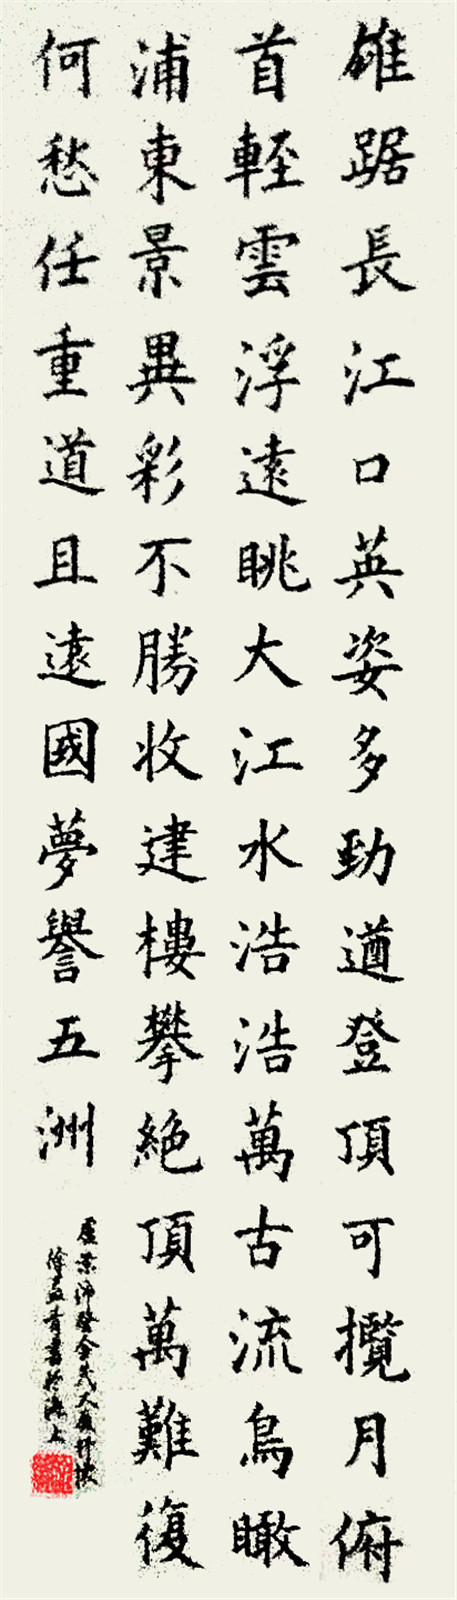 雄踞長江口英姿多勁遒登頂可攬月俯
首輕雲浮遠眺大江水浩浩萬古流鳥瞰
浦東景異彩不勝收建樓攀絶頂萬難復
何愁任重道且遠國夢譽五洲
登金茂大廈抒懷
書於海上